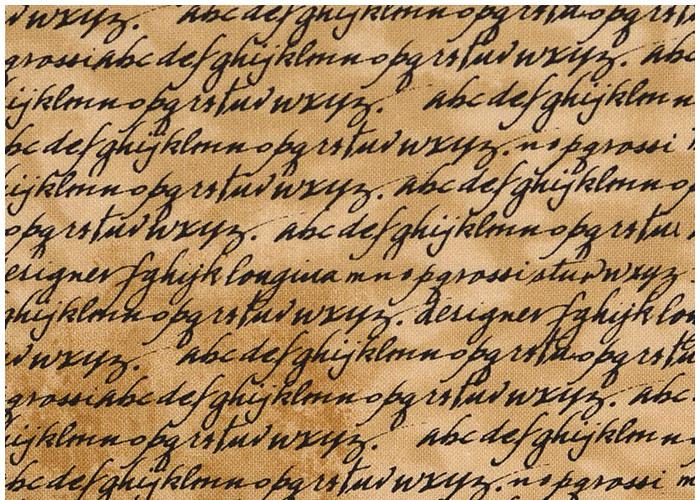 uvwxyz. abcdefghijklmnopqrstuvopqrstu
grossiabcdefghijklmnopqrstuvwxyz. abc
ijklmnopqrstuvwxyz. abcdefghijklmn
bcdefghijklmnopqrstuvwxyz.nopqrossi
ijklmnopqrstuvwxyz. abcdefghijklmno
opqrstuvwxyz. abcdefghijklmnopqrstuv
esignerfghijklonginamnopqrossistuvwxyz
hijklmnopqrstuvwxyz. designerfghijklon
uvwxyz. abcdefghijklmnopqrstuvopqrstu
grossiabcdefghijklmnopqrstuvwxyz. abc
ijklmnopqrstuvwxyz. abcdefghijklmn
bcdefghijklmnopqrstuvwxyz.nopqrossi